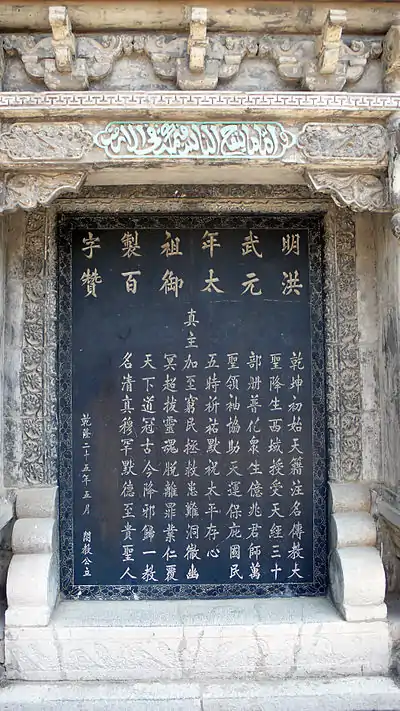 明洪
武元
年太
祖御
製百
字贊
乾坤初始天籍注名傳教大
聖降生西域授受天經三十
部册普化眾生億兆君師萬
聖領袖協助天運保庇國民
五時祈祐默祝太平存心
真主加至窮民拯救患難洞徹幽
冥超拔靈魂脫離罪業仁覆
天下道冠古今降邪歸一教
名清真穆罕默德至貴聖人
乾隆二十五年五月 閤教公立